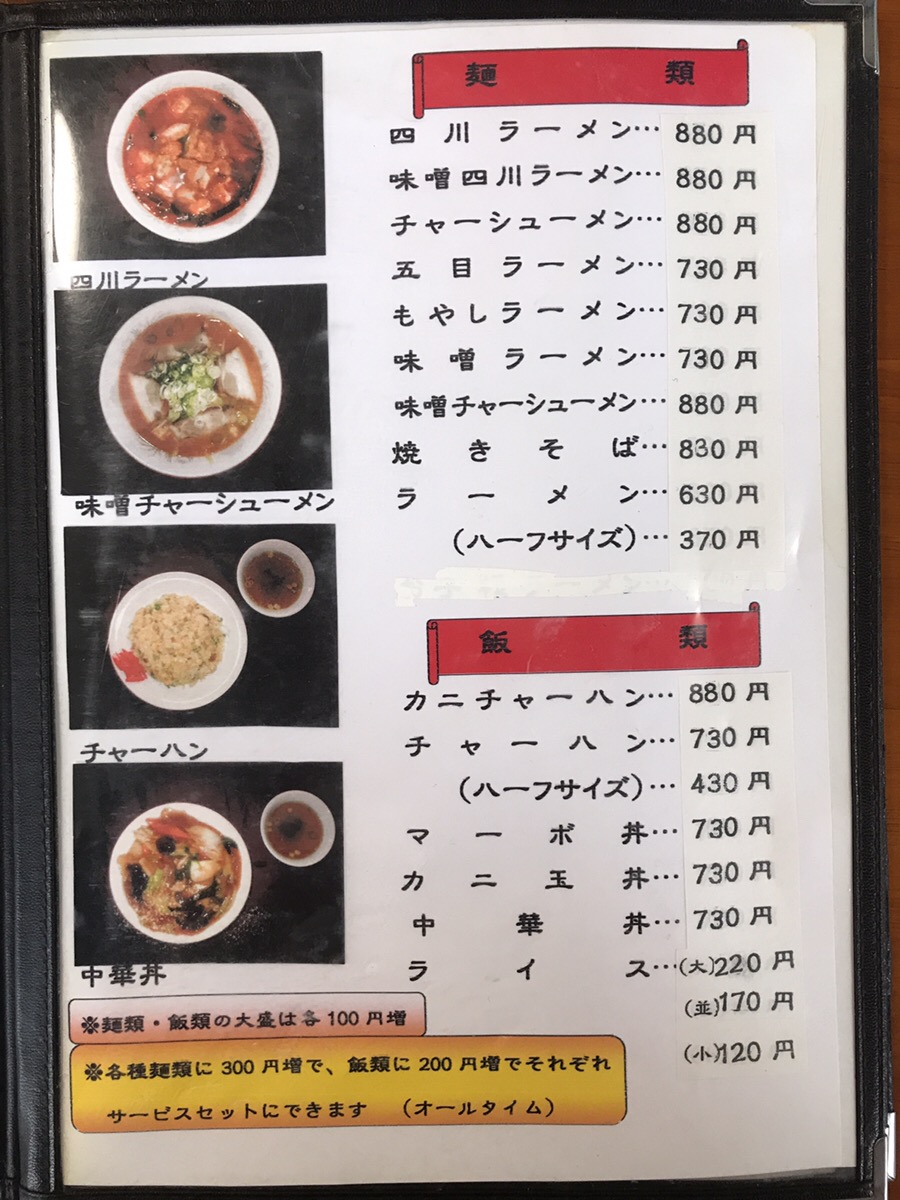 麺類
四川ラーメン…880円
味噌四川ラーメン…880円
チャーシューメン…880円
五目ラーメン…730円
もやしラーメン…730円
味噌ラーメン…730円
味噌チャーシューメン…880円
焼きそば…830円
ラーメン…630円
(ハーフサイズ)…370円
飯類
カニチャーハン…880円
チャーハン…730円
(ハーフサイズ)…430円
マーボ丼…730円
カニ玉丼…730円
中華丼…730円
ライス…(大)220円
(並)170円
(小)120円
四川ラーメン
味噌チャーシューメン
チャーハン
中華丼
※麺類・飯類の大盛は各100円増
※各種麺類に300円増で、飯類に200円増でそれぞれ
サービスセットにできます (オールタイム)